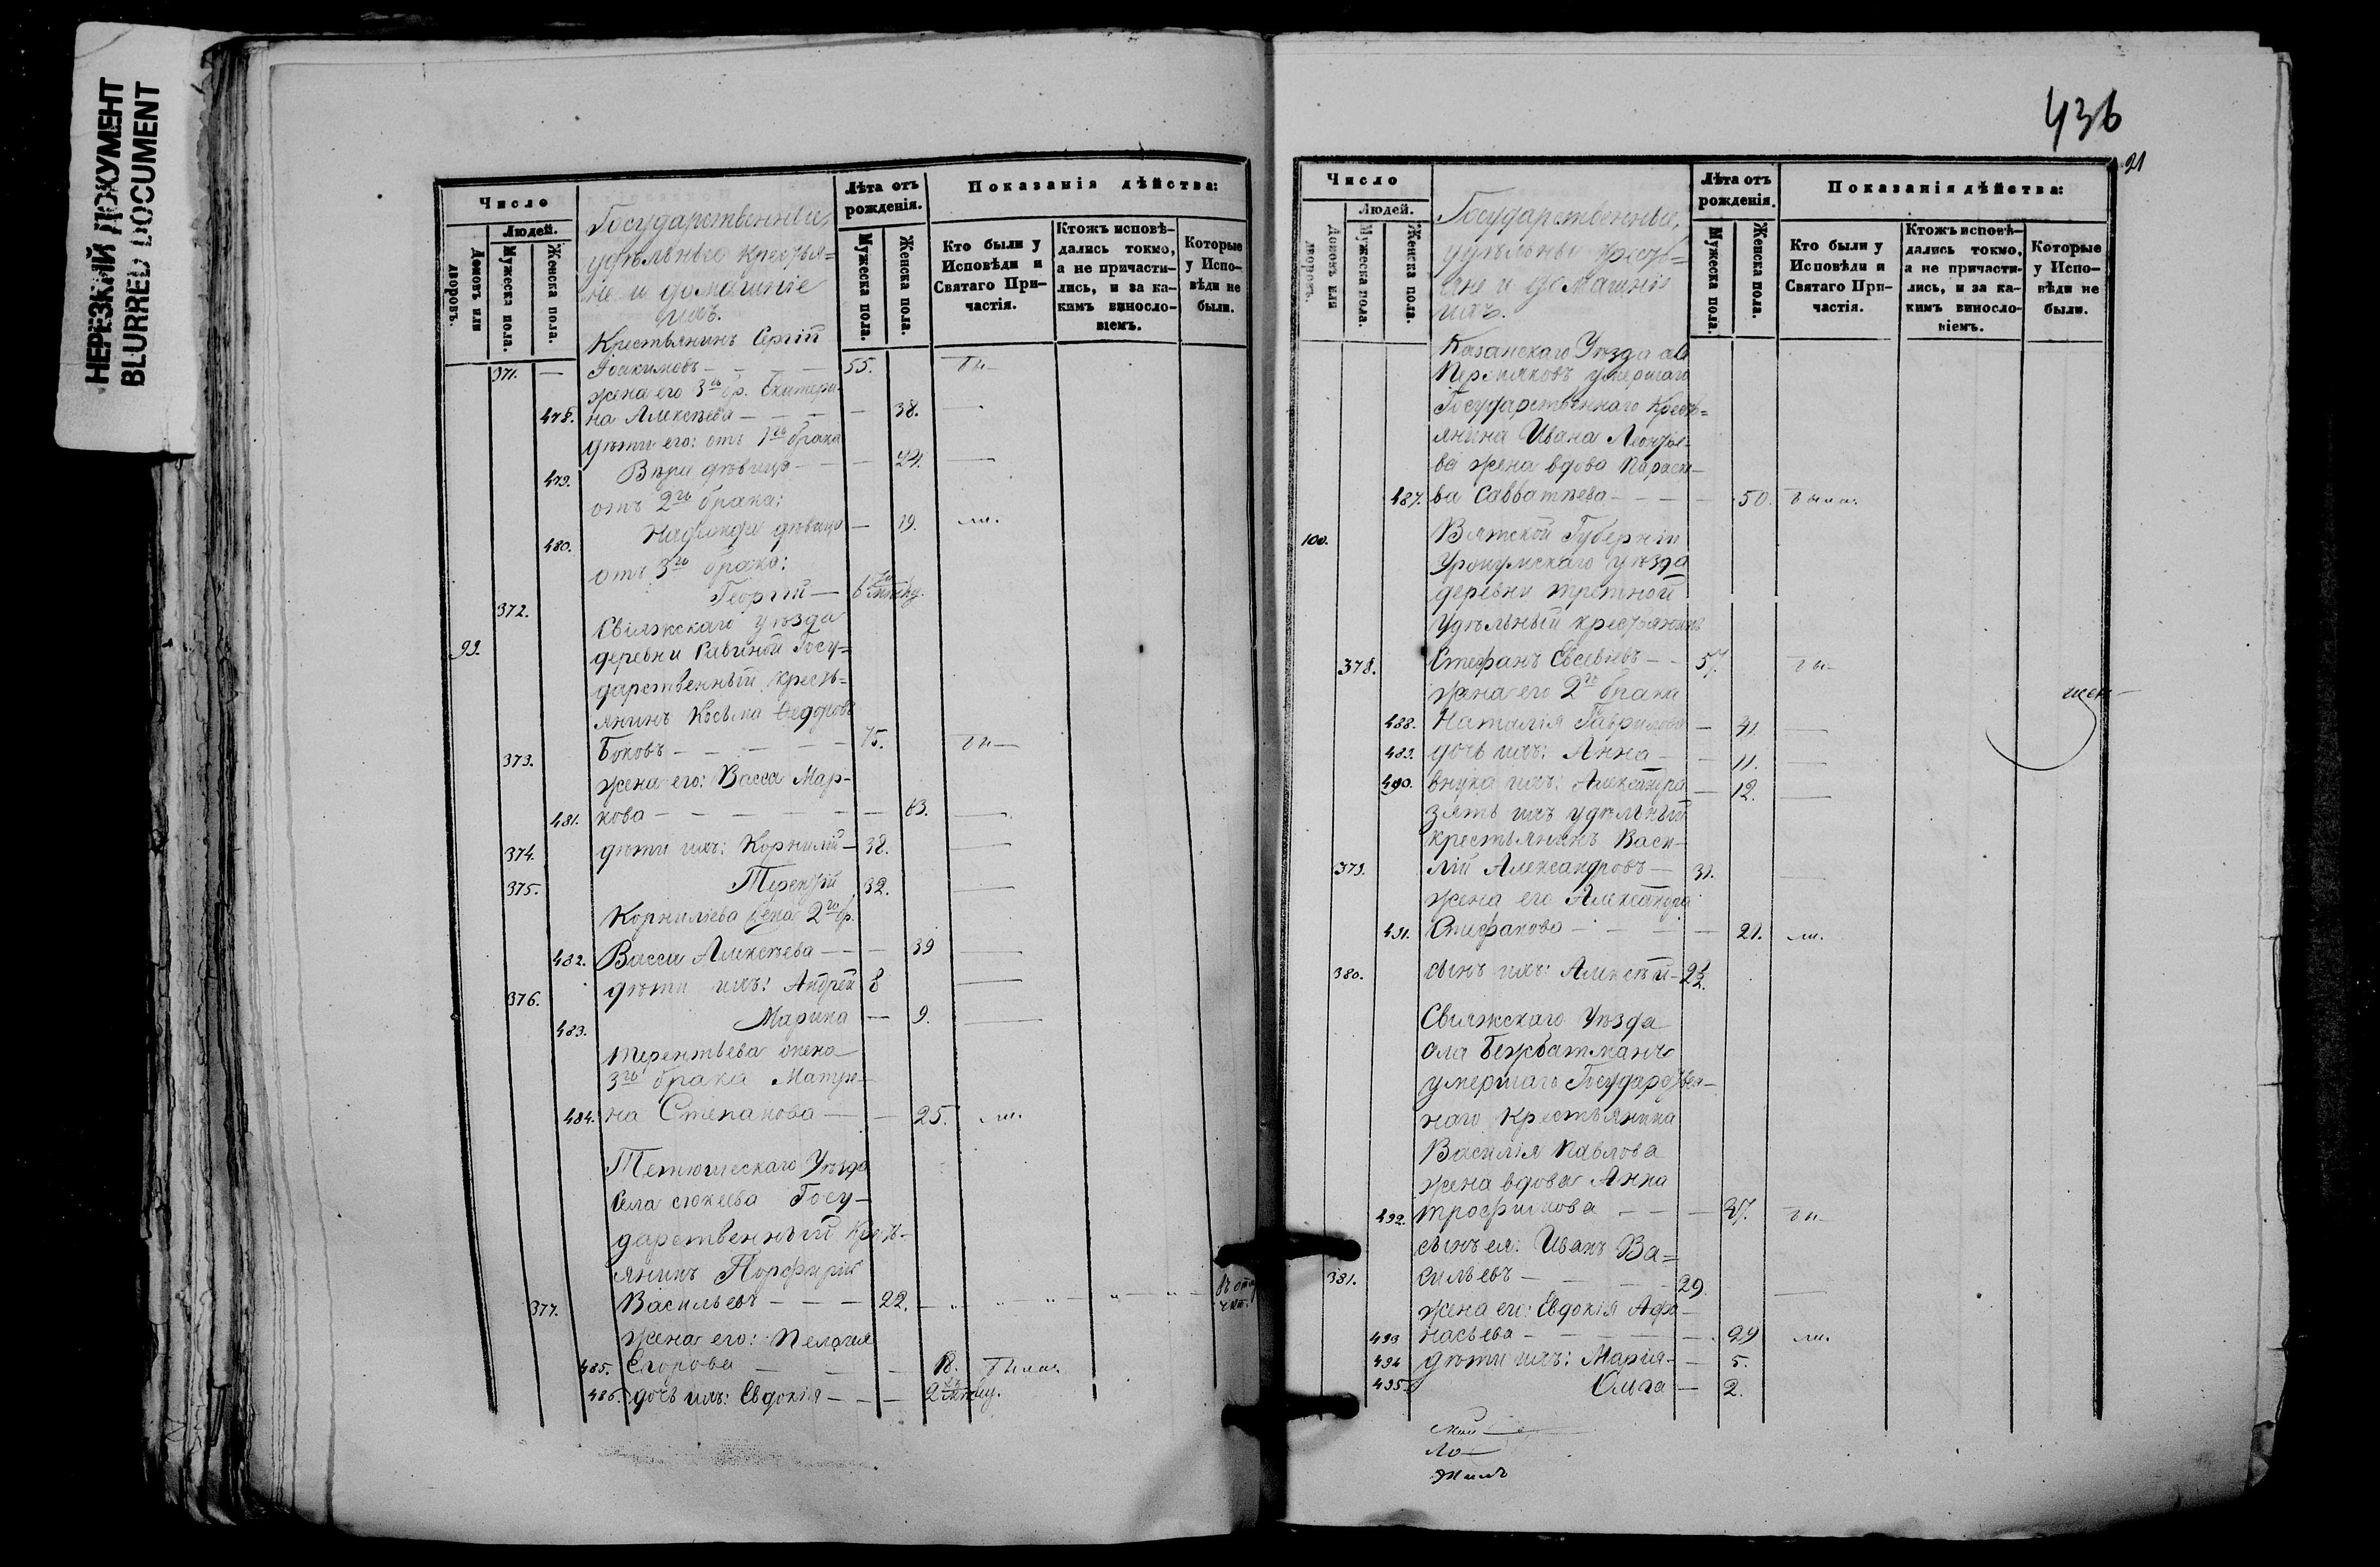 НЕРЕЗКИЙ ДОКУМЕНТ
BLURRED DOCUMENT
Число
Людей.
Домовъ или дворовъ.
Мужеска пола.
Женска пола.
Государственные,
удѣльные крестья=
не и домашніе
ихъ.
Лѣта отъ рожденія.
Мужеска пола.
Женска пола.
Показанія дѣйства:
Кто были у Исповѣди и Святаго Причастія.
Ктожъ исповѣдались токмо, а не причастились, и за какимъ винословіемъ.
Которые у Исповѣди не были.
Крестьянинъ Сергій
371. — Іоакимовъ — 55.
жена его 3го бр. Екатери
478. на Алексѣева — 38.
дѣти его: отъ 1го брака
479. Вѣра дѣвица — 24.
отъ 2го брака:
480. Надежда дѣвица — 19.
отъ 3го брака:
372. Георгій —
99. Свіяжскаго уѣзда
деревни Госу=
дарственный кресть=
янинъ Косьма Ѳедоровъ
373. Боковъ — 75.
жена его: Васса Мар-
481. кова — 63.
374. дѣти ихъ: Корнилій — 38.
375. Терентій 32.
Корниліева жена 2го бр.
482. Васса Алексѣева — 39
376. дѣти ихъ: Андрей 8
483. Марина — 9.
Терентьева жена
3го брака Матре-
484. на Степанова — 25.
Тетюшскаго Уѣзда
села Сюкеева Госу-
дарственный кресть-
янинъ Порфирій
377. Васильевъ — 22.
жена его: Пелагія
485. Егорова — 18. была.
486. дочь ихъ: Евдокія — 2
436
21
Число
Людей.
Домовъ или дворовъ.
Мужеска пола.
Женска пола.
Государственные,
удѣльные кресть=
яне и домашніе
ихъ.
Лѣта отъ рожденія.
Мужеска пола.
Женска пола.
Показанія дѣйства:
Кто были у Исповѣди и Святаго Причастія.
Ктожъ исповѣдались токмо, а не причастились, и за какимъ винословіемъ.
Которые у Исповѣди не были.
Казанскаго Уѣзда
умершаго
Государственнаго Кресть=
янина Ивана Леонтье-
ва жена вдова Параске-
487. ва Савватѣева — 50. была.
100. Вятской Губерніи
Уржумскаго уѣзда
деревни
Удѣльный крестьянинъ
378. Стефанъ Евсевіевъ — 57.
жена его 2го брака
488. Наталія Гаврилова — 41
489. дочь ихъ: Анна — 11.
490. внука ихъ: Александра — 12.
зять ихъ удѣльный
крестьянинъ Васи-
379. лій Александровъ — 31.
жена его Александра
491. Стефанова — 21.
380. сынъ ихъ: Алексѣй — 2½.
Свіяжскаго Уѣзда
умершаго Государствен-
наго Крестьянина
Василія Павлова
жена вдова Анна
492. Трофимова — 57.
сынъ ея: Иванъ Ва=
381. сильевъ — 29.
жена его: Евдокія Афа-
493 насьева — 29
494 дѣти ихъ: Марія — 5.
495. Ольга — 2.